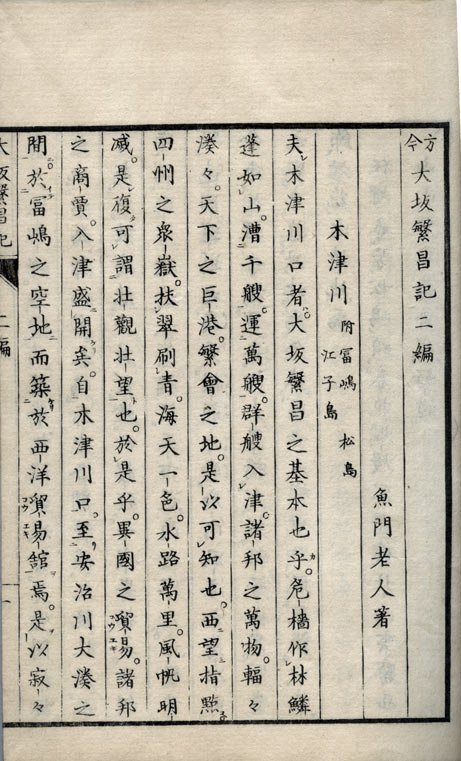 方今大坂繁昌記二編
魚門老人著
木津川 附 冨嶋 松島 江子島
夫木津川口者大坂繁昌之基本也乎危檣作林鱗
蓬如山漕千艘運萬艘群艘入津諸邦之萬物輻々
湊々天下之巨港繁會之地是以可知也西望指點
四州之衆嶽扶翠刷青海天一色水路萬里風帆明
滅是復可謂壯觀壯望也於是乎異國之貿易諸邦
之商賈入津盛開矣自木津川口至安治川大湊之
間於冨嶋之空地而築於西洋貿易舘焉是以寂々
大坂繁昌記 二編